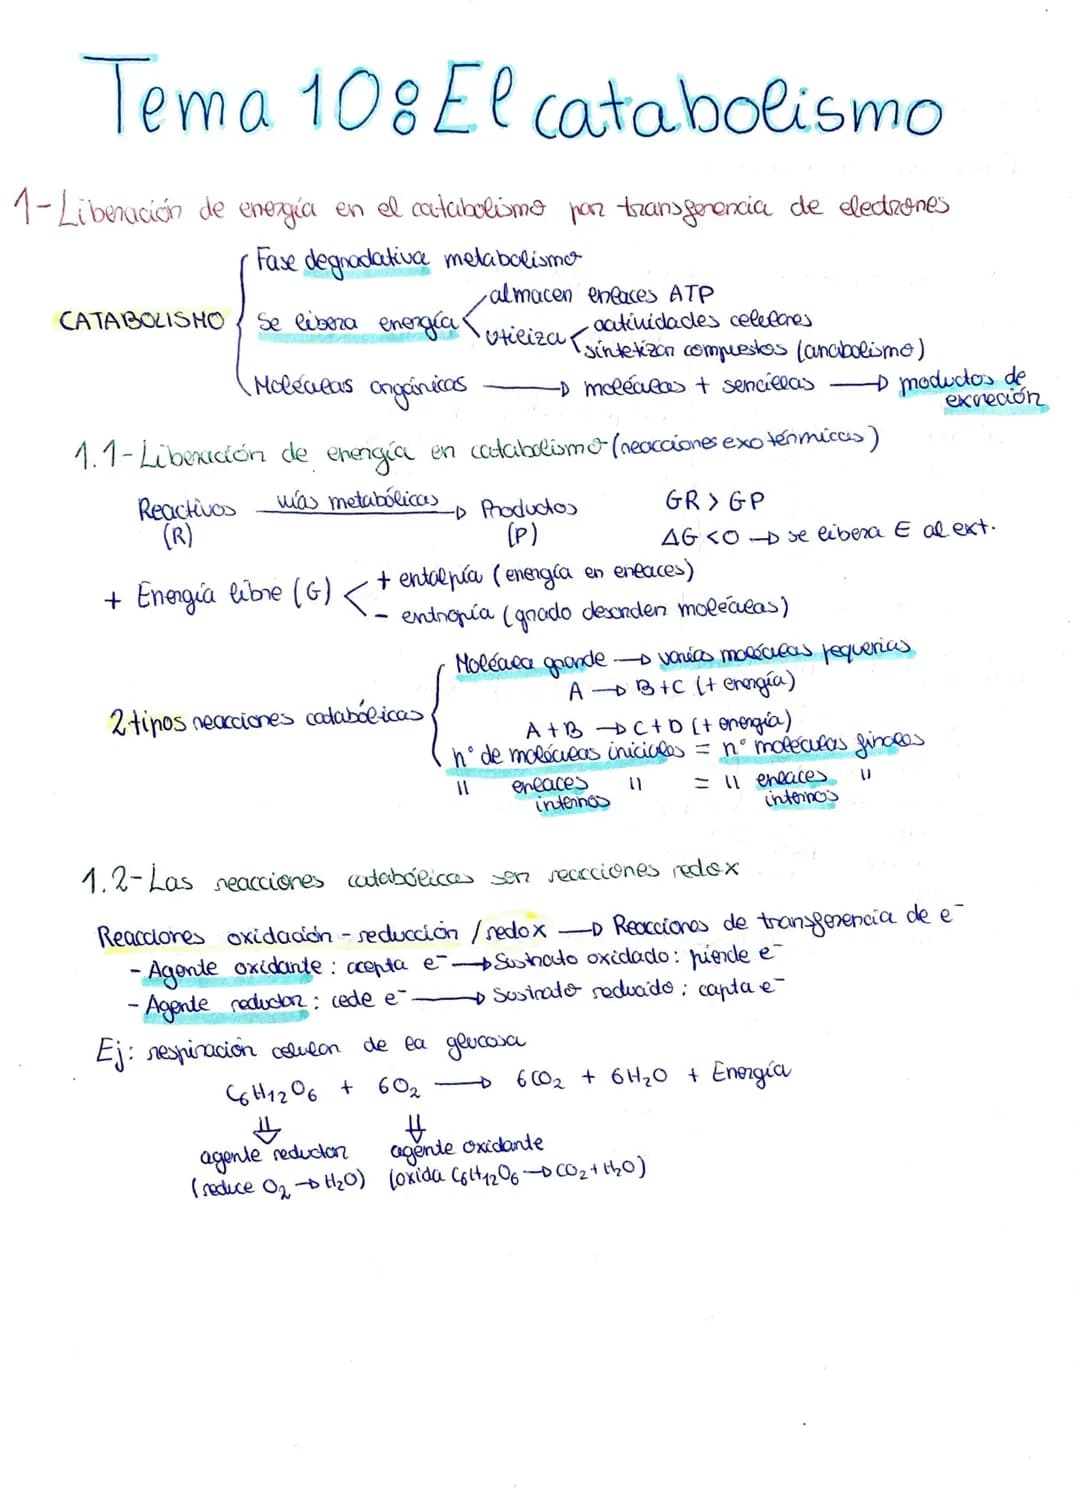 Tema 10: El catabolismo
1-Liberación de energía en el catabolismo por transferencia de electrones
Fase degradativa metabolismo
almacen enlaces ATP
CATABOLISMO
Se libera energía
utiliza
actividades celulares
sintetizan compuestos (anabolismo)
Moléculas orgánicas → moléculas + sencillas → productos de
excreción
1.1-Liberación de energía en catabolismo (reacciones exotérmicas)
Reactivos vías metabólicas → Productos GR > GP
(R) (P) ΔG<0 → se libera E al ext.
+ Energía libre (G)
+ entalpía (energía en enlaces)
- entropía (grado desorden moléculas)
Molécula grande → varias moléculas pequeñas
A → B+C (+ energía)
2 tipos reacciones catabólicas
A+B → C+D (+ energía)
nº de moléculas iniciales = nº moléculas finales
" enlaces " = " enlaces "
internos internos
1.2-Las reacciones catabólicas son reacciones redox
Reacciones oxidación-reducción / redox → Reacciones de transferencia de e⁻
- Agente oxidante: acepta e⁻ → Sustrato oxidado: pierde e⁻
- Agente reductor: cede e⁻ → Sustrato reducido: capta e⁻
Ej: respiración celular de la glucosa
C₆H₁₂O₆ + 6O₂ → 6CO₂ + 6H₂O + Energía
⇓ ⇓
agente reductor agente oxidante
(reduce O₂ → H₂O) (oxida C₆H₁₂O₆ → CO₂ + H₂O)